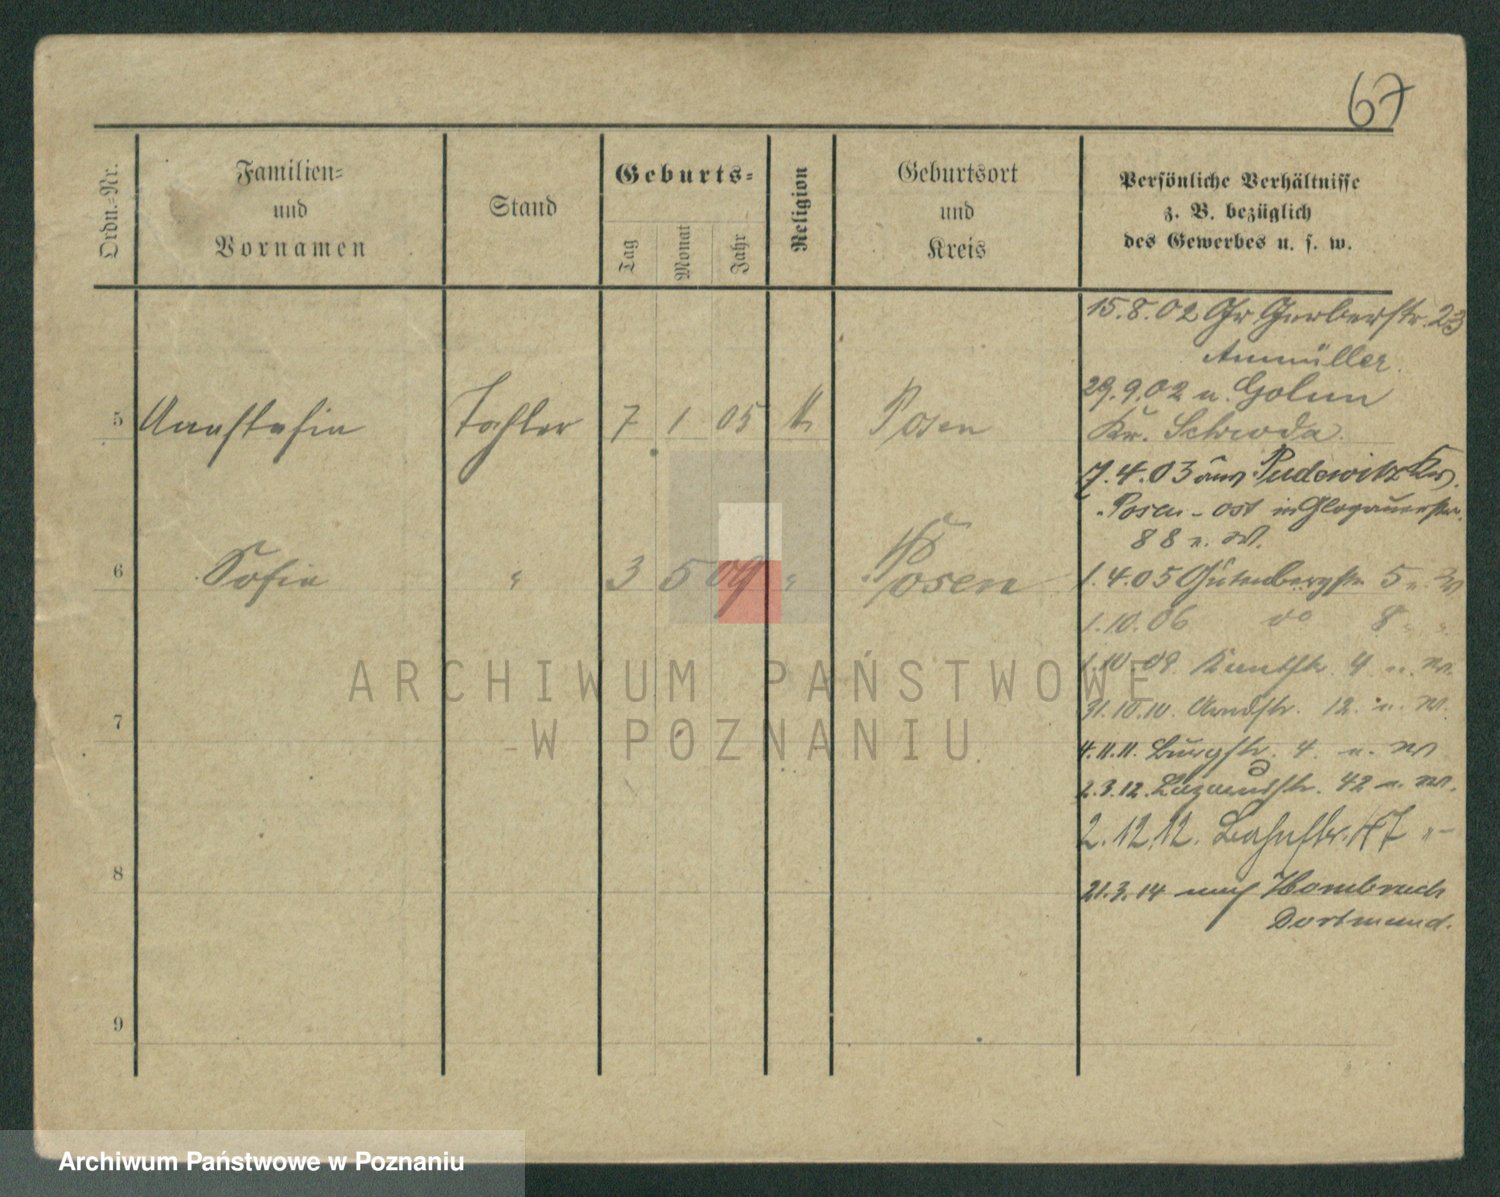 67
Ordn.-Nr.
Familien-
und
Vornamen
Stand
Geburts-
Tag
Monat
Jahr
Religion
Geburtsort
und
Kreis
Persönliche Verhältnisse
z. B. bezüglich
des Gewerbes u. s. w.
5 Anastasia Tochter 7 1 05 k. Posen
6 Sofia " 3 5 09 " Posen
7
8
9
15.8.02 Gr. Gerberstr. 23
Aumüller.
29.9.02 n. Golun
Kr. Schroda.
7.4.03 aus Pudewitz Kr.
Posen-ost in Glogauerstr.
88 n. W.
1.4.05 Gutenbergstr. 5 n. W
1.10.06 do 8 " "
1.10.09. Kantstr. 4 n. W.
31.10.10. Arndstr. 12. n. W.
4.11.11. Burgstr. 4 n. W
2.3.12. Lazarusstr. 42 n. W.
2.12.12. Bahnstr. 47 "
21.3.14 nach Hombruch
Dortmund.
ARCHIWUM PAŃSTWOWE
W POZNANIU
Archiwum Państwowe w Poznaniu